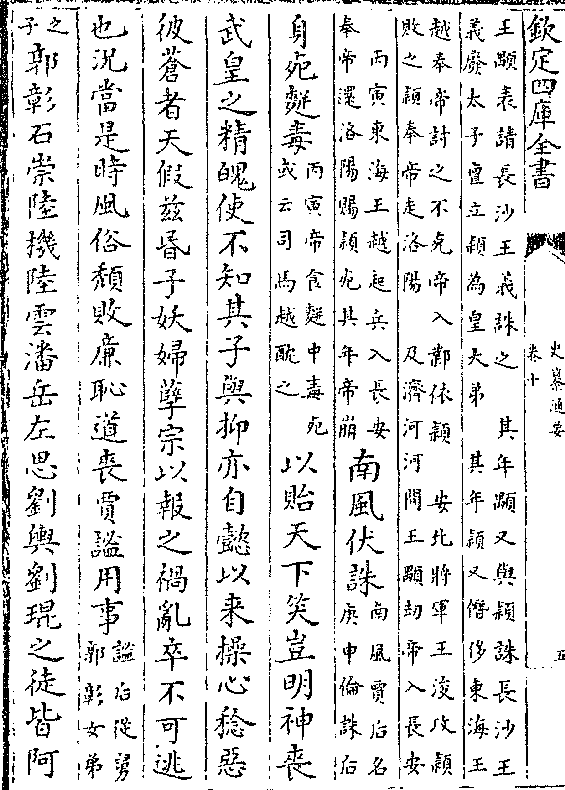 欽定四庫全書
史纂通要
卷十
五
王顒表請長沙王義誅之　其年顒又與頴誅長沙王
義廢太子覃立頴為皇太弟　其年頴又僭侈東海王
越奉帝討之不克帝入鄴依頴　安北將軍王浚攻頴
敗之頴奉帝走洛陽　及濟河河間王顒劫帝入長安
丙寅東海王越起兵入長安
奉帝還洛陽賜頴死其年帝崩
南風伏誅
南風賈后名
庚申倫誅后
身死麪毒
丙寅帝食麪中毒死
或云司馬越酖之
以貽天下笑豈明神喪
武皇之精魄使不知其子與抑亦自懿以来操心稔惡
彼蒼者天假兹昏子妖婦孽宗以報之禍亂卒不可逃
也況當是時風俗頽敗廉恥道喪賈謐用事
謐后從舅
郭彰女弟
之
子
郭彰石崇陸機陸雲潘岳左思劉輿劉琨之徒皆阿